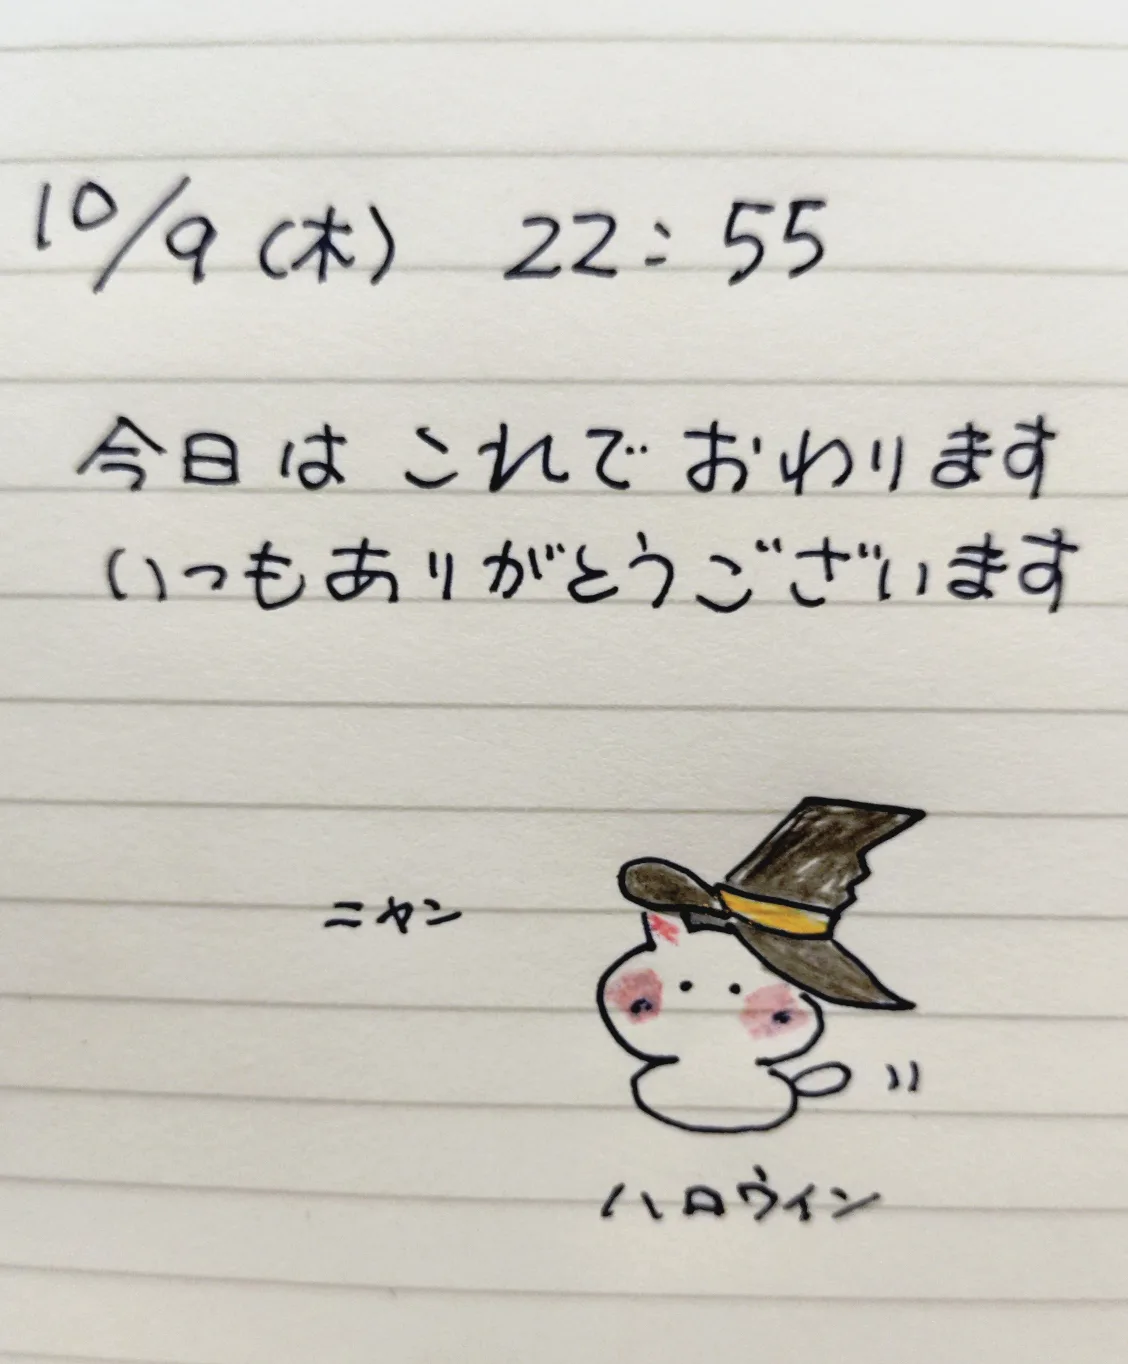 10/9(木) 22:55
今日は これで おわります
いつもありがとうございます
ニャン
ハロウィン